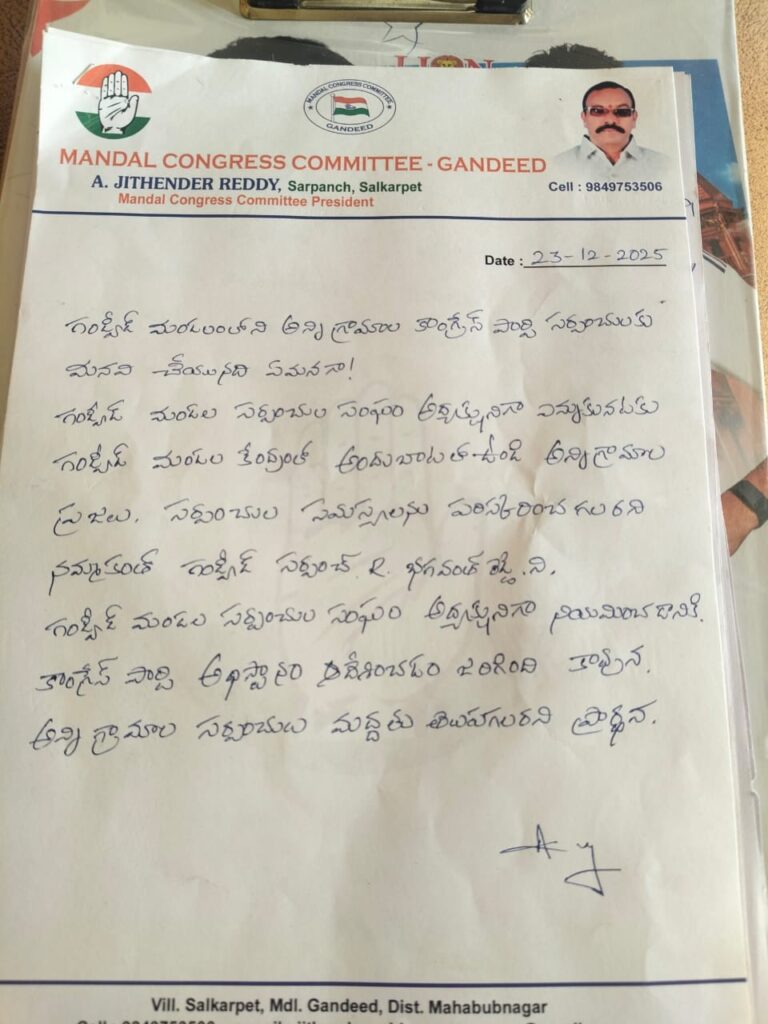 MANDAL CONGRESS COMMITTEE
GANDEED
MANDAL CONGRESS COMMITTEE - GANDEED
A. JITHENDER REDDY, Sarpanch, Salkarpet
Mandal Congress Committee President
Cell : 9849753506
Date : 23-12-2025
గండ్వీడ్ మండలంలోని అన్ని గ్రామాల కాంగ్రేస్ పార్టి సర్పంచులకు
మనవి చేయునది ఏమనగా!
గండ్వీడ్ మండల సర్పంచుల సంఘం అధ్యక్షునిగా ఎన్నుకునుటకు
గండ్వీడ్ మండల కేంద్రంలో అందుబాటులో ఉండి అన్ని గ్రామాల
ప్రజలు, సర్పంచుల సమస్యలను పరిస్కరించ గలరని
నమ్మకంతో గండ్వీడ్ సర్పంచ్ R. భగవంత్ రెడ్డి .ని.
గండ్వీడ్ మండల సర్పంచుల సంఘం అధ్యక్షునిగా నియమించడానికి.
కాంగ్రేస్ పార్టి అధిస్టానం ఆదేశించడం జరిగింది కావున.
అన్ని గ్రామాల సర్పంచులు మద్దతు తెలుపగలరని ప్రార్థన.
Vill. Salkarpet, Mdl. Gandeed, Dist. Mahabubnagar